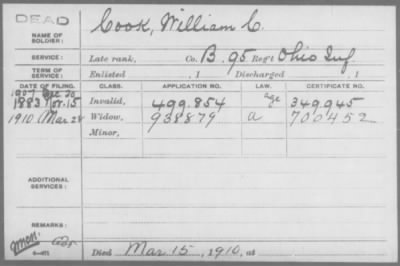 DEAD
NAME OF SOLDIER: Cook, William C.
SERVICE: Late rank, Co. B. 95 Reg't Ohio Inf
TERM OF SERVICE: Enlisted , 1 Discharged , 1
DATE OF FILING. CLASS. APPLICATION NO. LAW. CERTIFICATE NO.
1907 Dec 30
1883 Nov. 15 Invalid, 499.854 age 349,945
1910 Mar 28 Widow, 938879 a 700452
Minor,
ADDITIONAL SERVICES:
REMARKS:
Died Mar 15, 1910, at